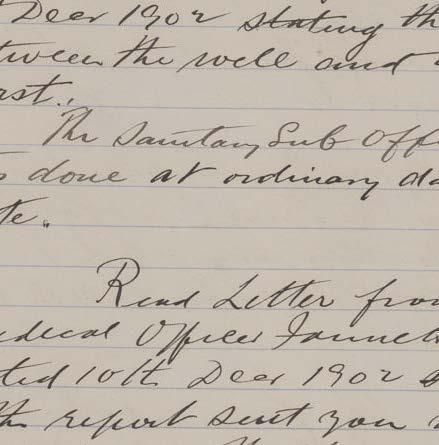 Decr 1902 stating th
tween the well and
rst.
The Sanitary Sub Offi
s done at ordinary da
te.
Read Letter fro
edical Officer Fannet
ted 10th Decr 1902 s
the report sent you